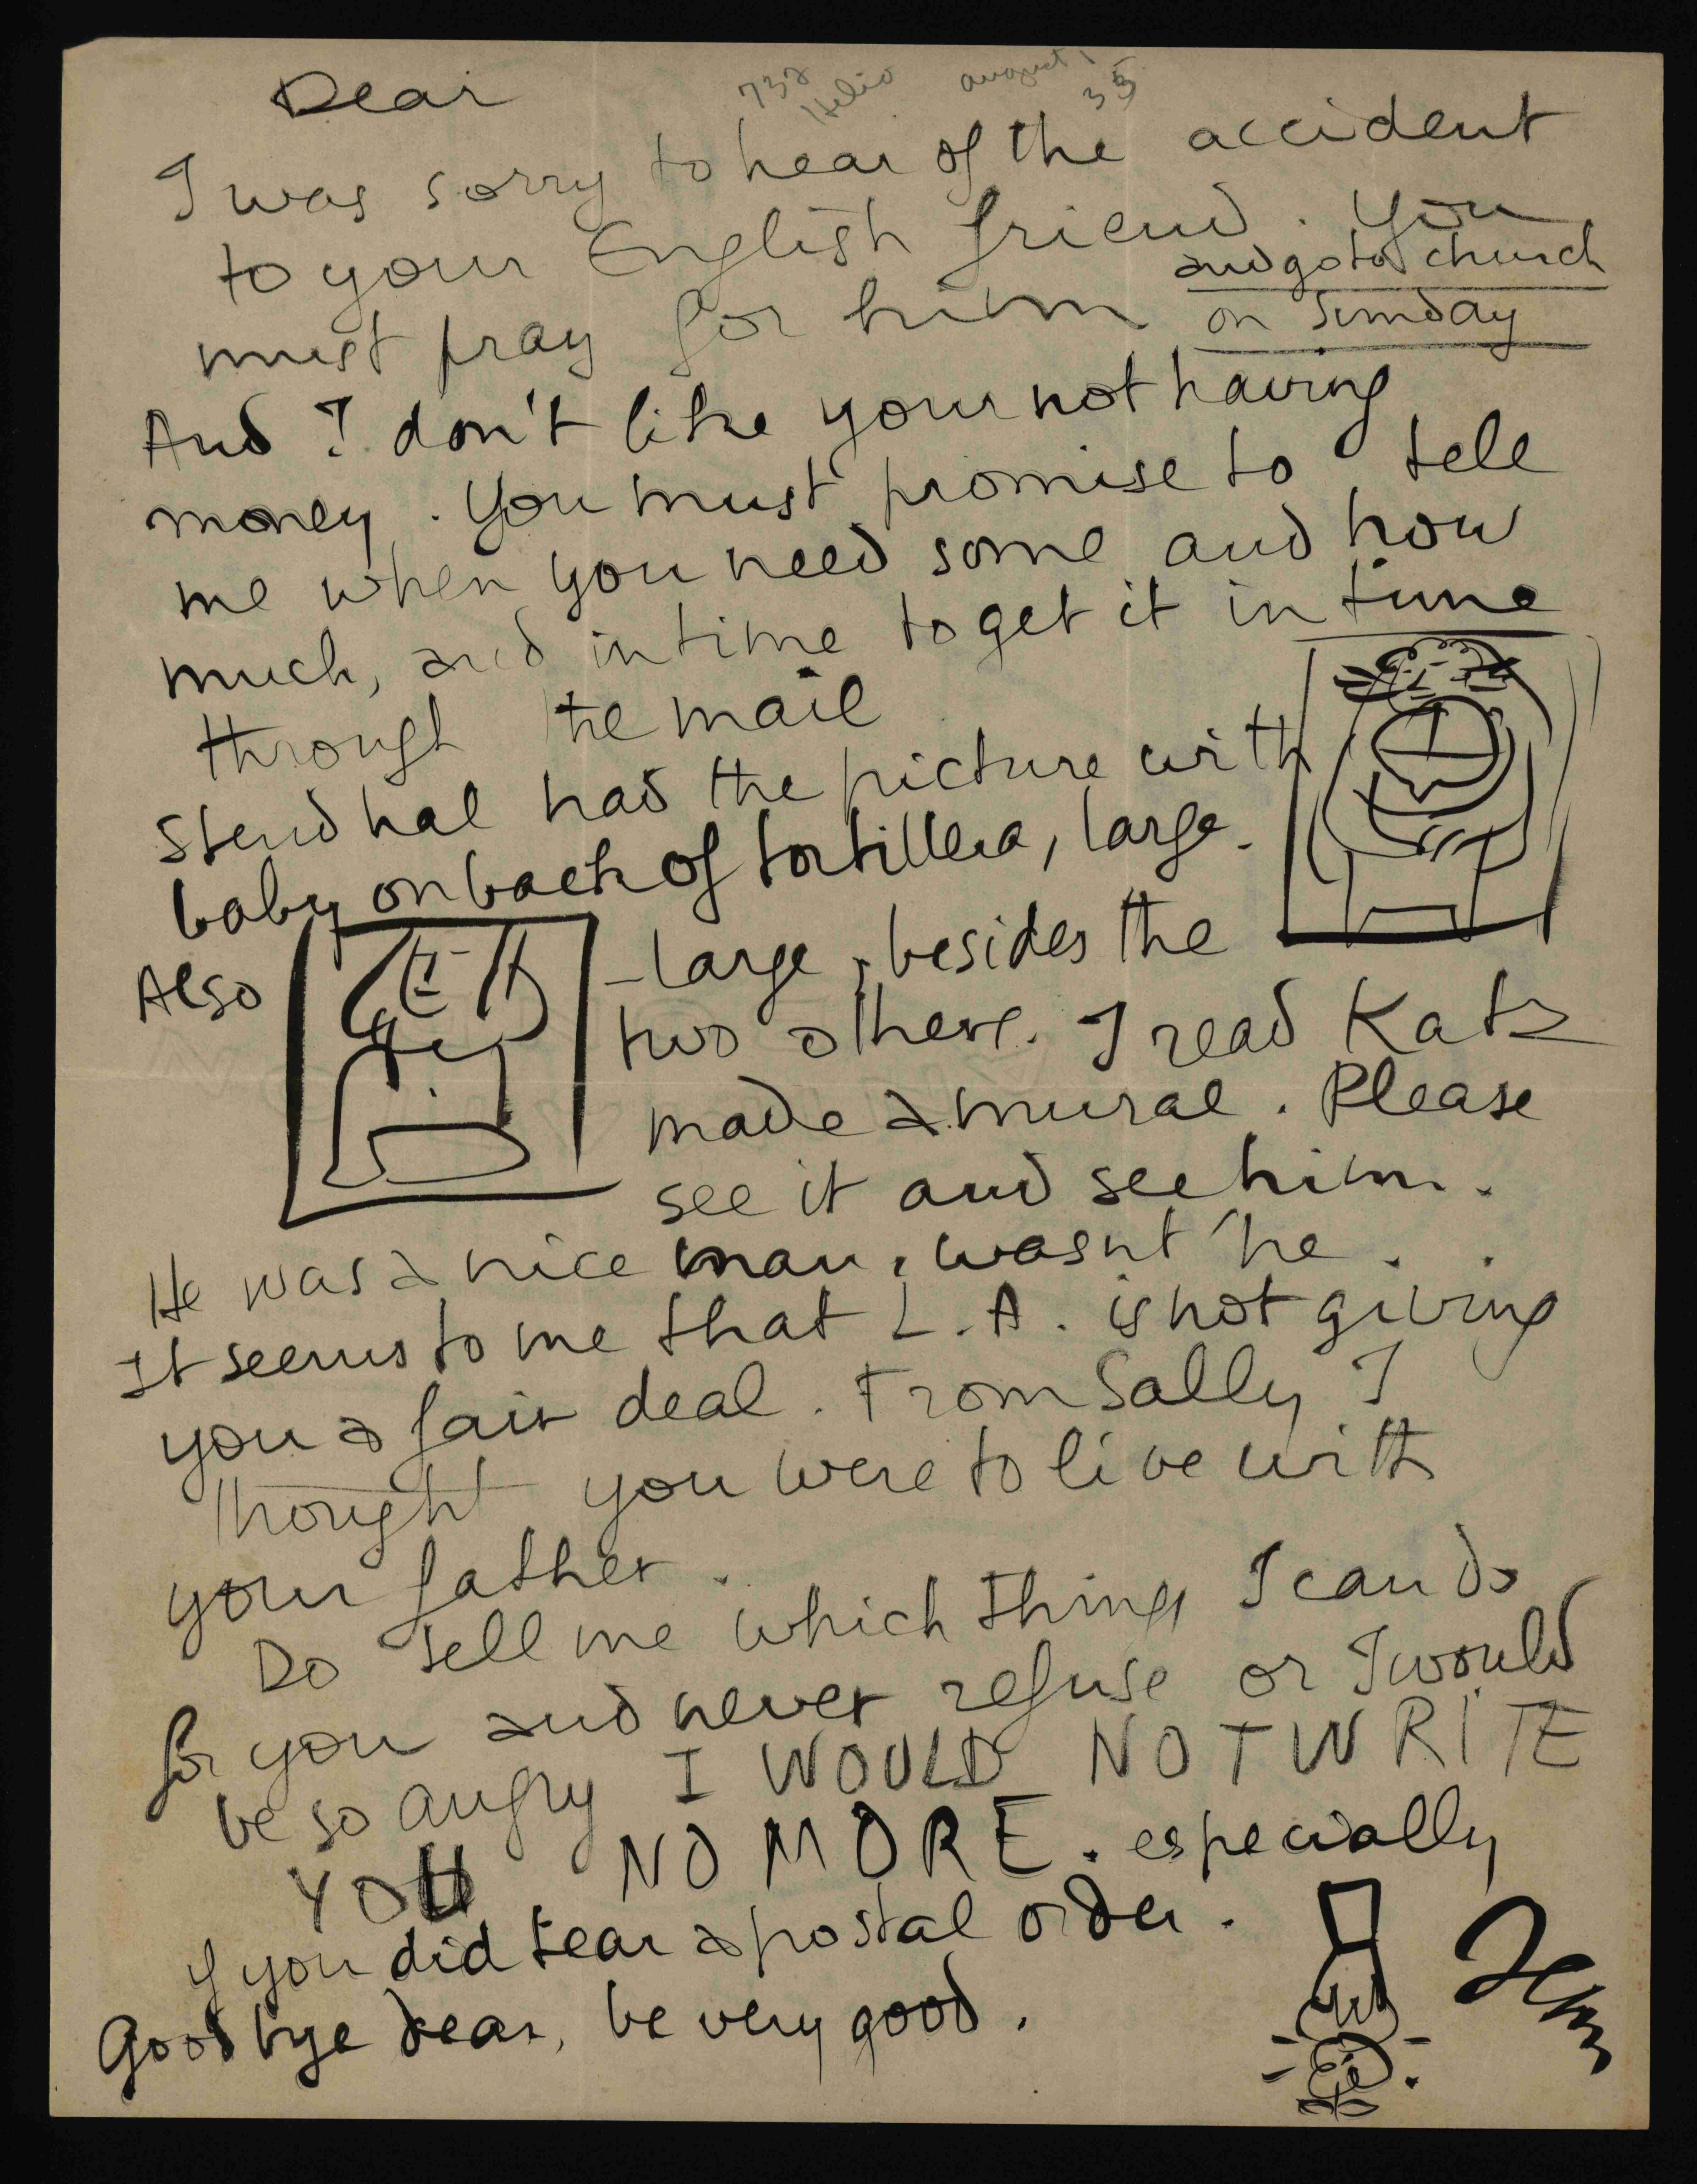 Dear
732 august 1
Helio 35
I was sorry to hear of the accident
to your English friend. You
must pray for him and go to church
on Sunday
And I don't like your not having
money. You must promise to tell
me when you need some and how
much, and in time to get it in time
through the mail
Stendhal has the picture with
baby on back of tortillera, large.
Also - large, besides the
two others. I read Katz
made a mural. Please
see it and see him.
He was a nice man, wasnt he.
It seems to me that L.A. is not giving
you a fair deal. From Sally I
thought you were to live with
your father.
Do tell me which things I can do
for you and never refuse or I would
be so angry I WOULD NOT WRITE
YOU NO MORE. especially
if you did tear a postal order.
Good bye dear, be very good.